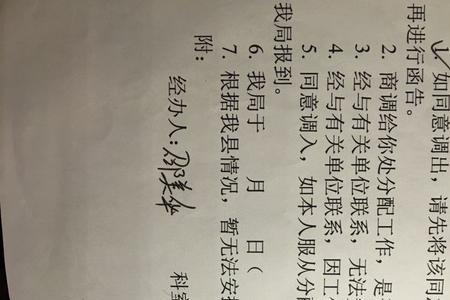 1. 如同意调出，请先将该同
再进行函告。
2. 商调给你处分配工作，是
3. 经与有关单位联系，无法
4. 经与有关单位联系，因工
5. 同意调入，如本人服从分
我局报到。
6. 我局于 月 日（
7. 根据我县情况，暂无法安
附：
经办人：邵美华 科室